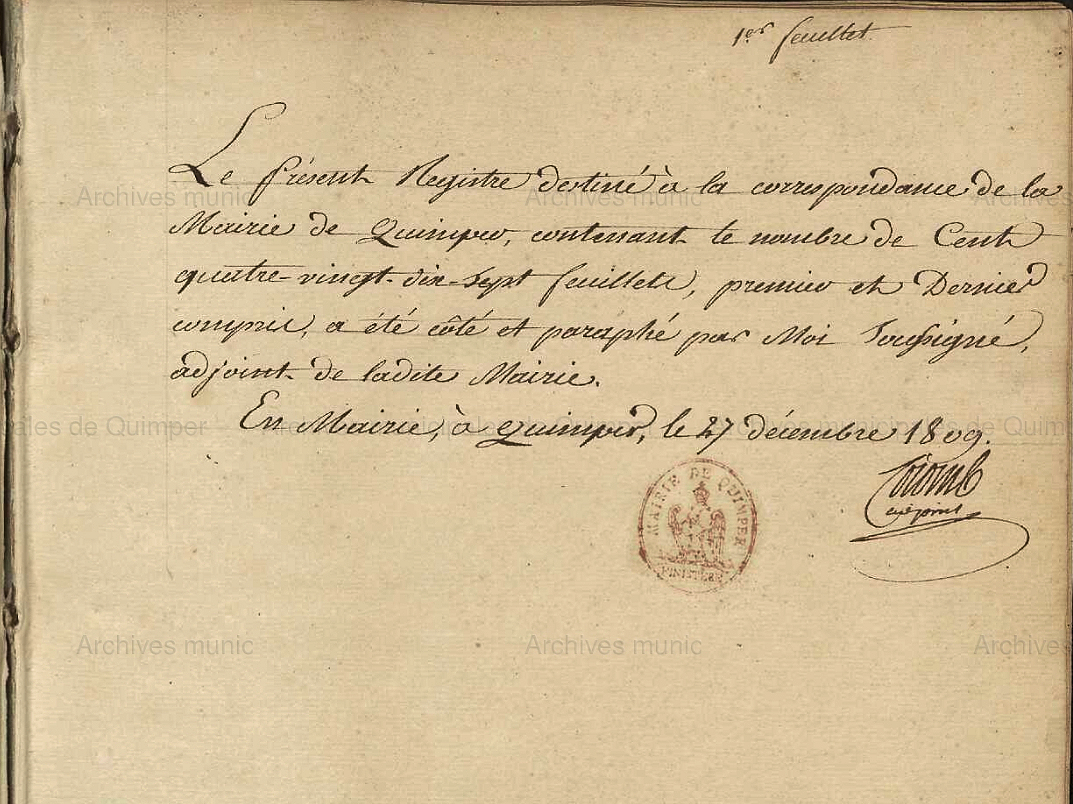 1er feuillet
Le présent Registre destiné à la correspondance de la
Mairie de Quimper, contenant le nombre de Cent
quatre-vingt-dix-sept feuillets, premier et Dernier
compris, a été côté et paraphé par Moi Soussigné,
adjoint de ladite Mairie.
En Mairie, à quimper, le 27 décembre 1809.
Colomb
adjoint
MAIRIE DE QUIMPER
FINISTERE
Archives munic
Archives munic
Archives
ales de Quimper
Archives munic
Archives munic
Archives